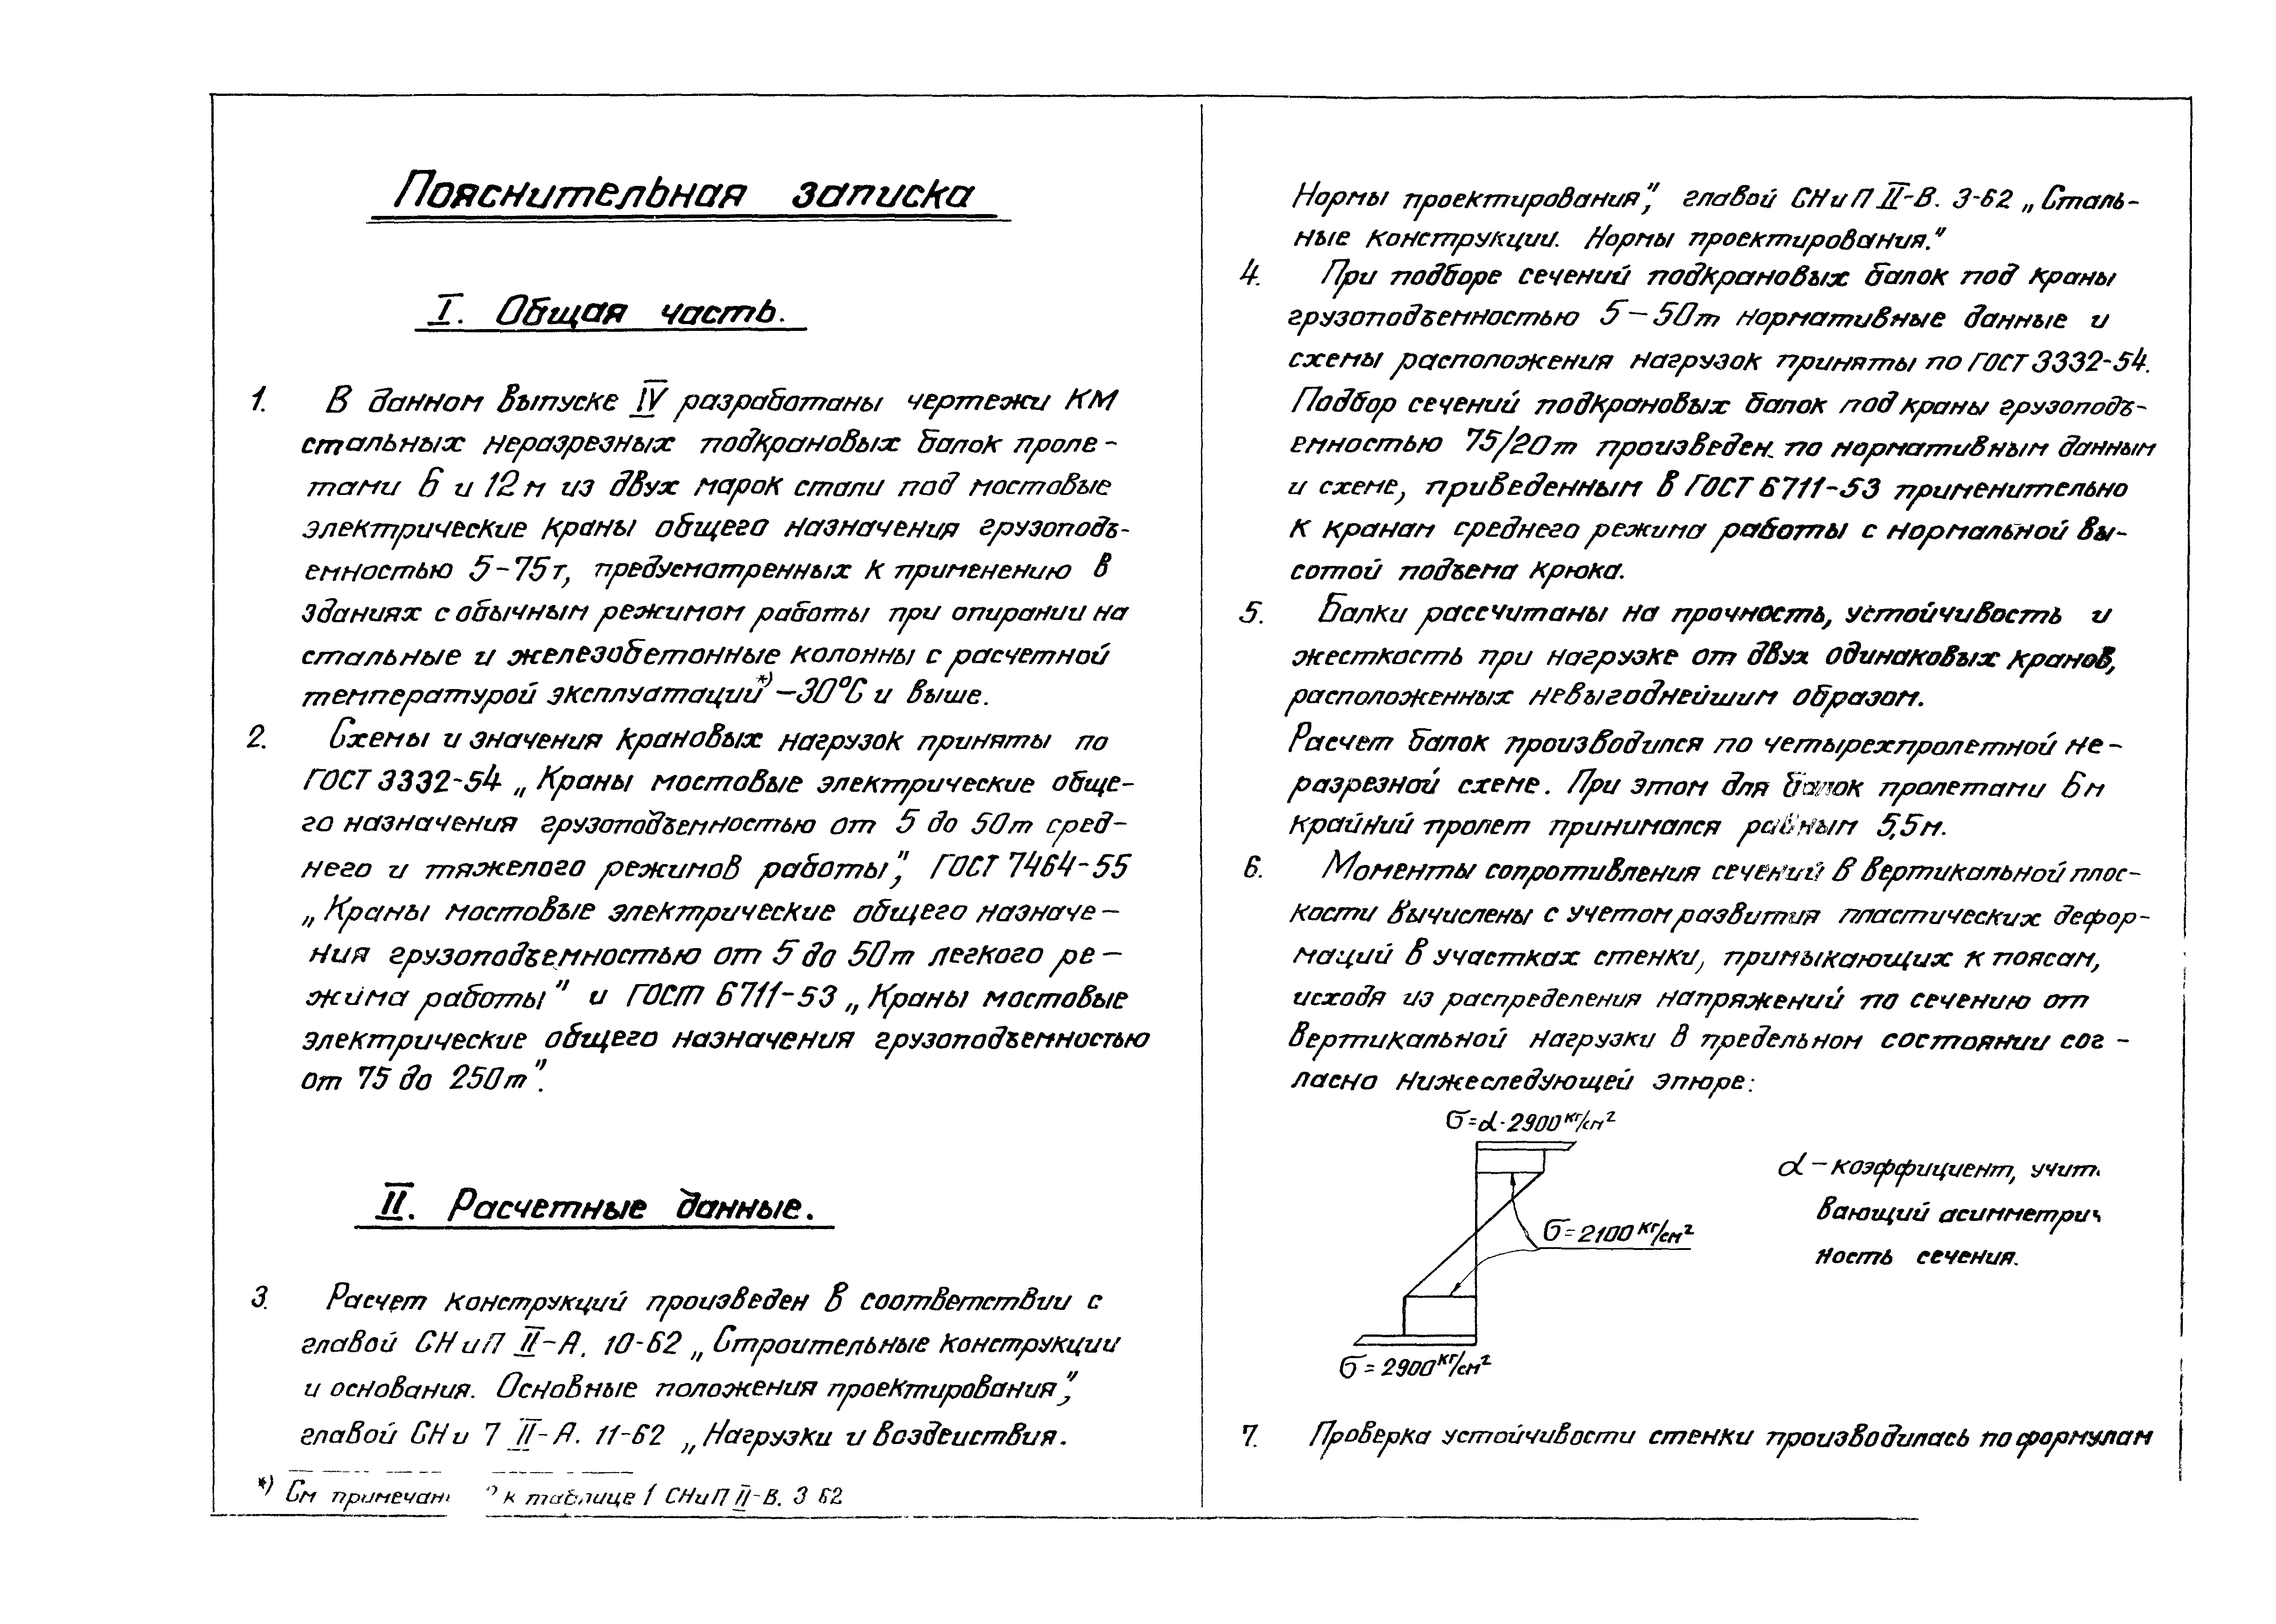 Пояснительная записка
I. Общая часть.
1. В данном выпуске IV разработаны чертежи КМ
стальных неразрезных подкрановых балок проле-
тами 6 и 12 м из двух марок стали под мостовые
электрические краны общего назначения грузоподъ-
емностью 5-75т, предусмотренных к применению в
зданиях с обычным режимом работы при опирании на
стальные и железобетонные колонны с расчетной
температурой эксплуатации*) -30°С и выше.
2. Схемы и значения крановых нагрузок приняты по
ГОСТ 3332-54 „Краны мостовые электрические обще-
го назначения грузоподъемностью от 5 до 50т сред-
него и тяжелого режимов работы", ГОСТ 7464-55
„Краны мостовые электрические общего назначе-
ния грузоподъемностью от 5 до 50т легкого ре-
жима работы" и ГОСТ 6711-53 „Краны мостовые
электрические общего назначения грузоподъемностью
от 75 до 250т".
II. Расчетные данные.
3. Расчет конструкций произведен в соответствии с
главой СНиП II-А. 10-62 „Строительные конструкции
и основания. Основные положения проектирования",
главой СНи 7 II-А. 11-62 „Нагрузки и воздействия.
*) См примечан к таблице 1 СНиП II-В. 3 62
Нормы проектирования", главой СНиП II-В. 3-62 „Сталь-
ные конструкции. Нормы проектирования."
4. При подборе сечений подкрановых балок под краны
грузоподъемностью 5-50т нормативные данные и
схемы расположения нагрузок приняты по ГОСТ 3332-54.
Подбор сечений подкрановых балок под краны грузоподъ-
емностью 75/20т произведен по нормативным данным
и схеме, приведенным в ГОСТ 6711-53 применительно
к кранам среднего режима работы с нормальной вы-
сотой подъема крюка.
5. Балки рассчитаны на прочность, устойчивость и
жесткость при нагрузке от двух одинаковых кранов,
расположенных невыгоднейшим образом.
Расчет балок производился по четырехпролетной не-
разрезной схеме. При этом для балок пролетами 6м
крайний пролет принимался равным 5,5м.
6. Моменты сопротивления сечений в вертикальной плос-
кости вычислены с учетом развития пластических дефор-
маций в участках стенки, примыкающих к поясам,
исходя из распределения напряжений по сечению от
вертикальной нагрузки в предельном состоянии сог-
ласно нижеследующей эпюре:
σ=α·2900 кг/см²
α - коэффициент, учит
вающий асимметрич
ность сечения.
σ=2100 кг/см²
σ=2900 кг/см²
7. Проверка устойчивости стенки производилась по формулам